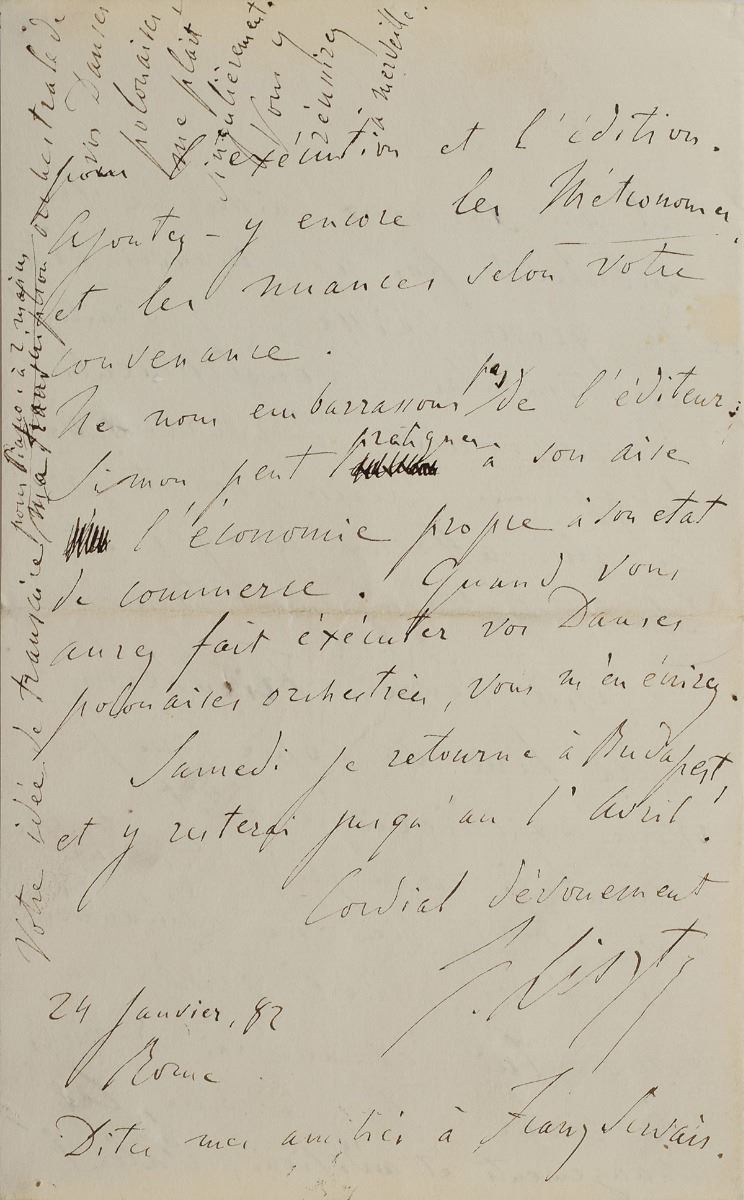 pour l'exécution et l'édition.
Ajoutez-y encore les Métronomes,
et les nuances selon votre
convenance.
Ne nous embarrassons pas de l'éditeur;
Simon peut pratiquer à son aise
l'économie propre à son état
de commerce. Quand vous
aurez fait éxécuter vos Danses
polonaises orchestrées, vous m'en écrirez.
Samedi je retourne à Budapest
et y resterai jusqu'au 1er Avril.
Cordial dévouement
F. Liszt
24 Janvier, 82
Rome
Dites mes amitiés à Franz Servais.
Votre idée de transcrire pour Piano: à 2 mains
ma transcription orchestrale de
vos Danses
polonaises
me plait
singulièrement.
Vous y
réussirez
à merveille.